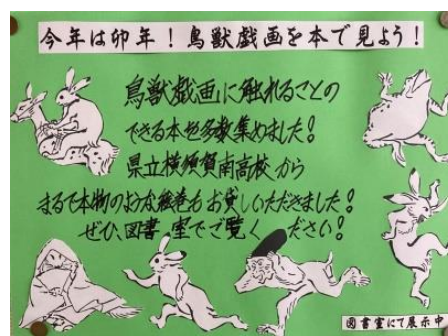 今年は卯年！鳥獣戯画を本で見よう！
鳥獣戯画に触れることの
できる本を多数集めました！
県立横須賀南高校から
まるで本物のような絵巻もお貸しいただきました！
ぜひ、図書室でご覧ください！
図書室にて展示中